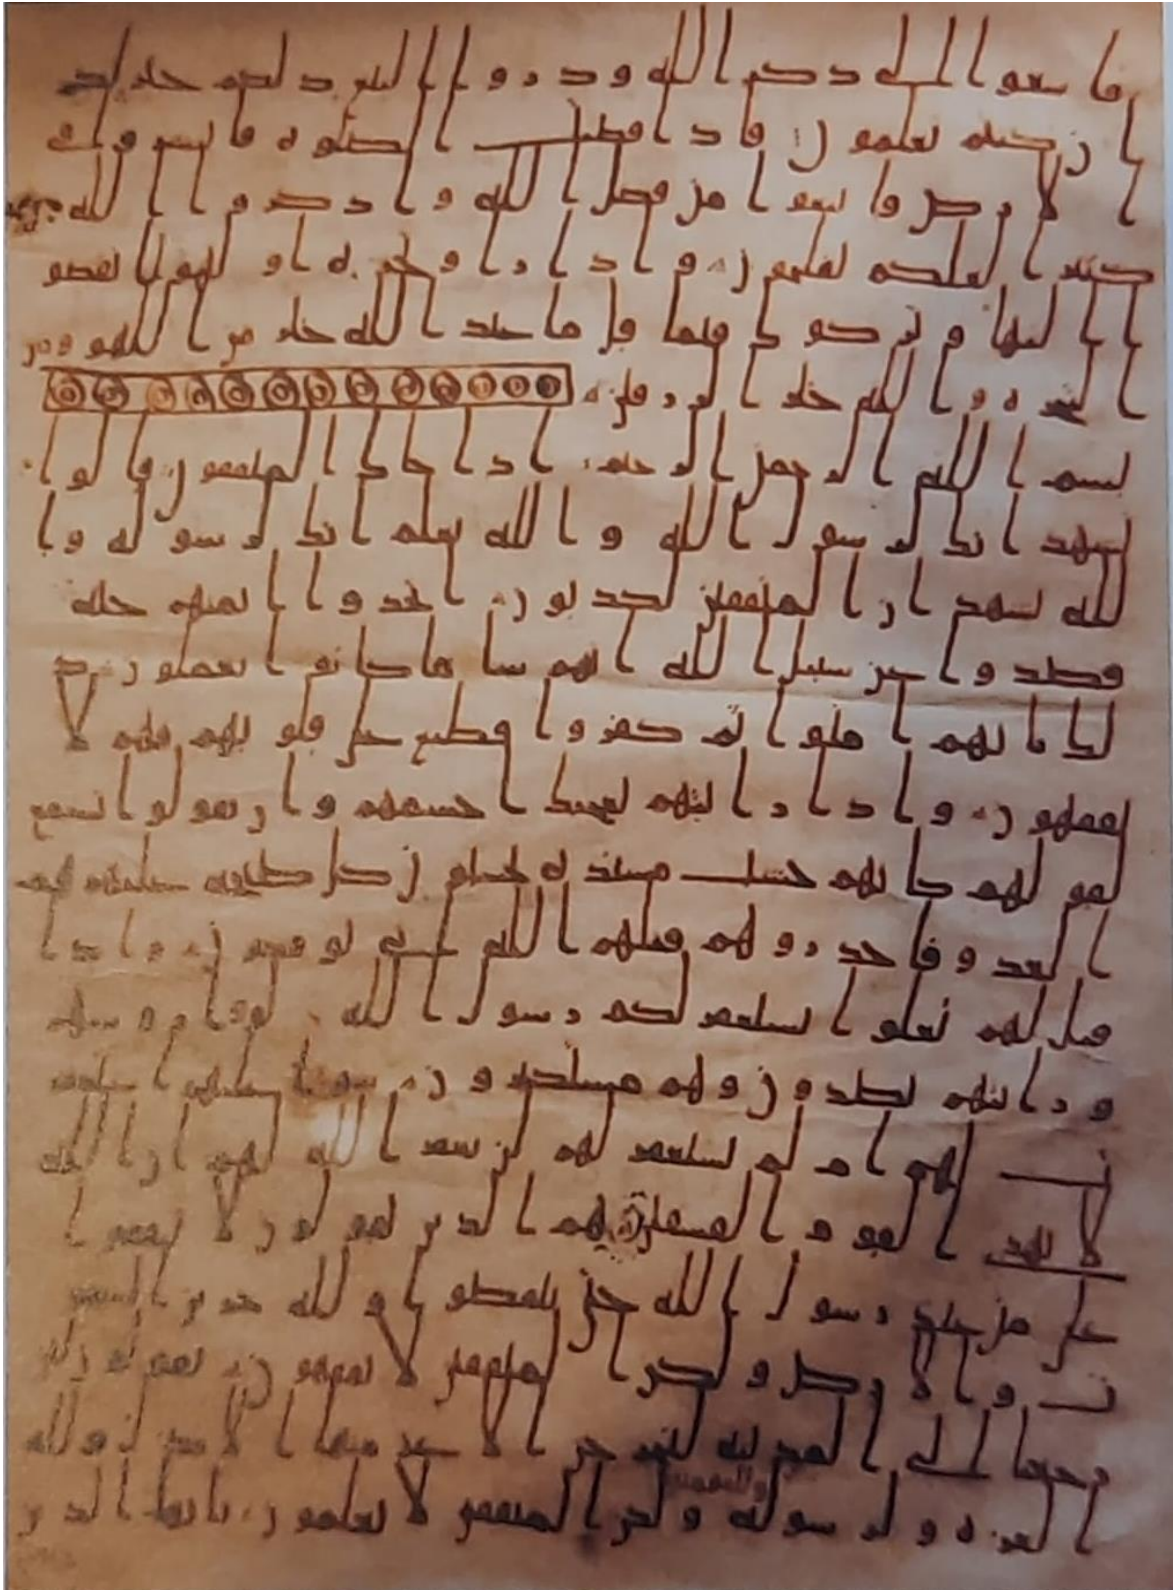 فاسعوا الى ذكر الله وذروا البيع ذلكم خير لكم
ان كنتم تعلمون فاذا قضيت الصلوة فانتشروا في
الارض وابتغوا من فضل الله واذكروا الله
كثيرا لعلكم تفلحون واذا راوا تجرة او لهوا انفضو
ا اليها وتركوك قيما قل ما عند الله خير من اللهو ومن
التجرة والله خير الرزقين
بسم الله الرحمن الرحيم اذا جاك المنفقون قالوا
نشهد انك لرسول الله والله يعلم انك لرسوله وا
لله يشهد ان المنفقين لكذبون اتخذوا ايمنهم جنة
فصدوا عن سبيل الله انهم سا ما كانوا يعملون ذ
لك بانهم امنوا ثم كفروا فطبع على قلوبهم فهم لا
يفقهون واذا رايتهم تعجبك اجسمهم وان يقولوا تسمع
لقولهم كانهم خشب مسندة يحسبون كل صيحة عليهم هم
العدو فاحذروهم قتلهم الله انى يوفكون واذا
قيل لهم تعلوا يستغفر لكم رسول الله لووا روسهم
ورايتهم يصدون وهم مستكبرون سوا عليهم استغفر
ت لهم ام لم تستغفر لهم لن يغفر الله لهم ان الله
لا يهدي القوم الفسقين هم الذين يقولون لا تنفقوا
على من عند رسول الله حتى ينفضوا ولله خزين السمو
ت والارض ولكن المنفقين لا يفقهون يقولون لين
رجعنا الى المدينة ليخرجن الاعز منها الاذل ولله
والمومنين
العزة ولرسوله ولكن المنفقين لا يعلمون يايها الذين